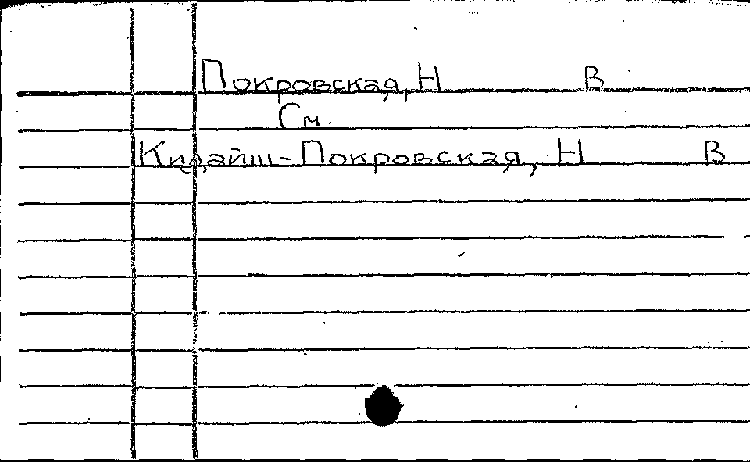 Покровская, Н В
См
Кидайш-Покровская, Н В